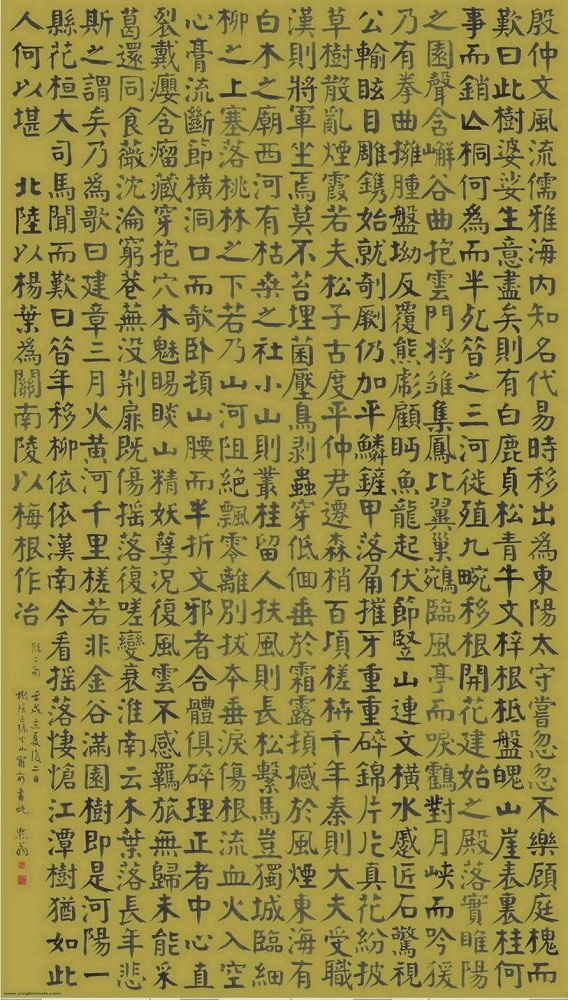 殷仲文風流儒雅海內知名代易時移出為東陽太守嘗忽忽不樂顧庭槐而
歎曰此樹婆娑生意盡矣則有白鹿貞松青牛文梓根柢盤魄山崖表裏桂何
事而銷亾桐何為而半死昔之三河徙殖九畹移根開花建始之殿落實睢陽
之園聲含嶰谷曲抱雲門將雛集鳳比翼巢鵷臨風亭而唳鶴對月峽而吟猨
乃有拳曲擁腫盤坳反覆熊彪顧眄魚龍起伏節豎山連文橫水蹙匠石驚視
公輸眩目雕鐫始就剞劂仍加平鱗鏟甲落角摧牙重重碎錦片片真花紛披
草樹散亂煙霞若夫松子古度平仲君遷森梢百頃槎枿千年秦則大夫受職
漢則將軍坐焉莫不苔埋菌壓鳥剝蟲穿低佪垂於霜露頓撼於風煙東海有
白木之廟西河有枯桑之社小山則叢桂留人扶風則長松繫馬豈獨城臨細
柳之上塞落桃林之下若乃山河阻絕飄零離別拔本垂淚傷根流血火入空
心膏流斷節橫洞口而欹臥頓山腰而半折文邪者合體俱碎理正者中心直
裂戴癭含瘤藏穿抱穴木魅睗睒山精妖孽況復風雲不感羈旅無歸未能采
葛還同食薇沈淪窮巷蕪沒荊扉既傷搖落復嗟變衰淮南云木葉落長年悲
斯之謂矣乃為歌曰建章三月火黃河千里槎若非金谷滿園樹即是河陽一
縣花桓大司馬聞而歎曰昔年移柳依依漢南今看搖落悽愴江潭樹猶如此
人何以堪　北陸以楊葉為關南陵以梅根作冶
脫二句 壬戌立夏後二日
www.yingbishufa.com